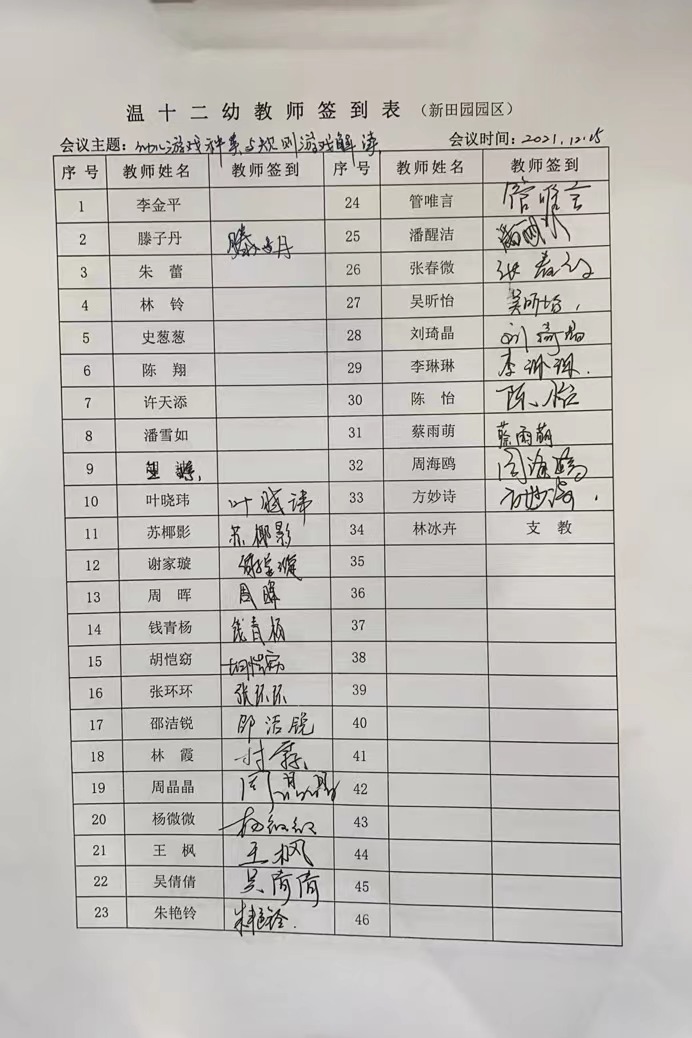 温十二幼教师签到表（新田园园区）
会议主题：幼儿游戏种类与规则游戏解读 会议时间：2021.12.15
序号 教师姓名 教师签到 序号 教师姓名 教师签到
1 李金平 24 管唯言 管唯言
2 滕子丹 滕子丹 25 潘醒洁
3 朱蕾 26 张春微 张春微
4 林铃 27 吴昕怡 吴昕怡
5 史葱葱 28 刘琦晶 刘琦晶
6 陈翔 29 李琳琳 李琳琳
7 许天添 30 陈怡 陈怡
8 潘雪如 31 蔡雨萌 蔡雨萌
9 32 周海鸥 周海鸥
10 叶晓玮 叶晓玮 33 方妙诗 方妙诗
11 苏椰影 苏椰影 34 林冰卉 支教
12 谢家璇 谢家璇 35
13 周晖 周晖 36
14 钱青杨 钱青杨 37
15 胡恺窈 胡恺窈 38
16 张环环 张环环 39
17 邵洁锐 邵洁锐 40
18 林霞 林霞 41
19 周晶晶 周晶晶 42
20 杨微微 杨微微 43
21 王枫 王枫 44
22 吴倩倩 吴倩倩 45
23 朱艳铃 朱艳铃 46